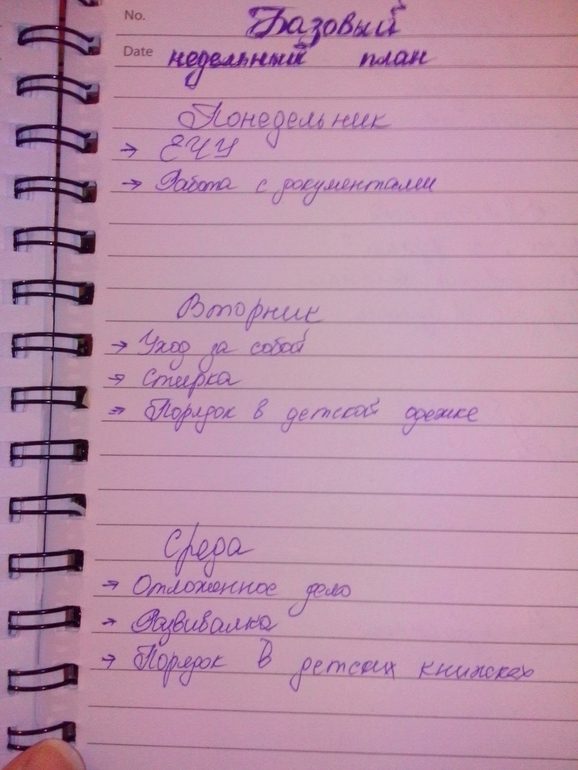 No.
Базовый
Date
недельный план
Понедельник
→ ЕЧЦ
→ Работа с документами
Вторник
→ Уход за собой
→ Стирка
→ Порядок в детской одежке
Среда
→ Отложенное дело
→ Развивалка
→ Порядок в детских книжках